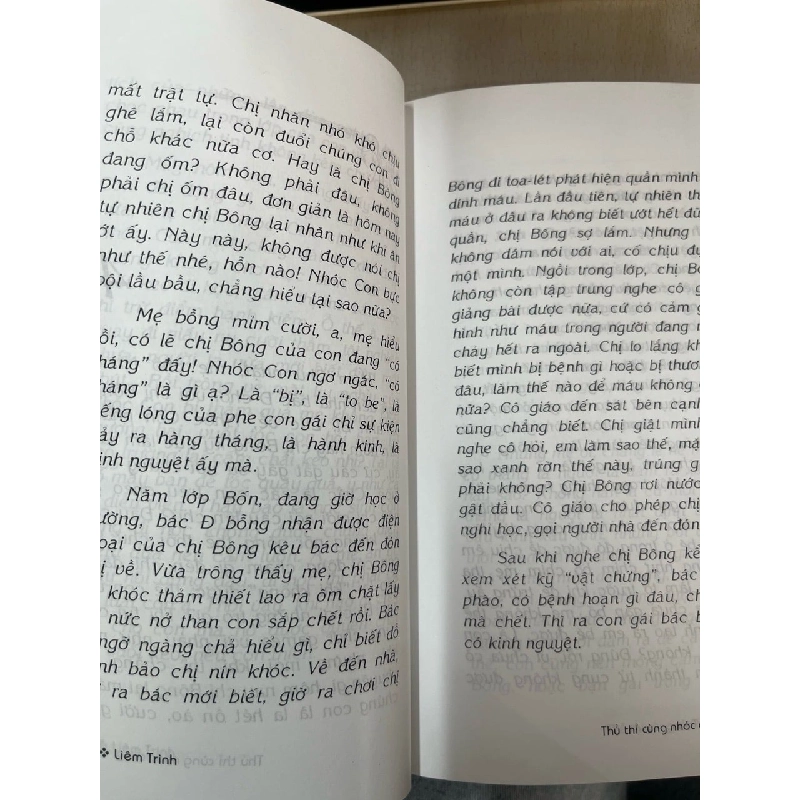 mất trật tự. Chị nhăn nhó khó chịu
ghê lắm, lại còn đuổi chúng con đi
chỗ khác nữa cơ. Hay là chị Bông
đang ốm? Không phải đâu, không
phải chị ốm đâu, đơn giản là hôm nay
tự nhiên chị Bông lại nhăn như khỉ ăn
ớt ấy. Này này, không được nói chị
như thế nhé, hỗn nào! Nhóc Con bực
bội lầu bầu, chẳng hiểu lại sao nữa?
Mẹ bỗng mỉm cười, a, mẹ hiểu
rồi, có lẽ chị Bông của con đang “có
tháng” đấy! Nhóc Con ngơ ngác, “có
tháng” là gì ạ? Là “bị”, là “to be”, là
tiếng lóng của phe con gái chỉ sự kiện
xẩy ra hàng tháng, là hành kinh, là
kinh nguyệt ấy mà.
Năm lớp Bốn, đang giờ học ở
trường, bác Đ bỗng nhận được điện
thoại của chị Bông kêu bác đến đón
chị về. Vừa trông thấy mẹ, chị Bông
khóc thảm thiết lao ra ôm chặt lấy
nức nở than con sắp chết rồi. Bác
ngỡ ngàng chả hiểu gì, chỉ biết dỗ
dành bảo chị nín khóc. Về đến nhà,
ra bác mới biết, giờ ra chơi chị
❖ Liêm Trinh
Bông đi toa-lét phát hiện quần mình
dính máu. Lần đầu tiên, tự nhiên
máu ở đâu ra không biết ướt hết
quần, chị Bông sợ lắm. Nhưng
không dám nói với ai, cố chịu
một mình. Ngồi trong lớp, chị
không còn tập trung nghe cô
giảng bài được nữa, cứ có cảm
hình như máu trong người đang
chảy hết ra ngoài. Chị lo lắng
biết mình bị bệnh gì hoặc bị
đâu, làm thế nào để máu không
nữa? Cô giáo đến sát bên
cũng chẳng biết. Chị giật mình
nghe cô hỏi, em làm sao thế,
sao xanh rờn thế này, trúng
phải không? Chị Bông rơi nước
gật đầu. Cô giáo cho phép chị
nghỉ học, gọi người nhà đến đón
Sau khi nghe chị Bông kể
xem xét kỹ “vật chứng”, bác
phào, có bệnh hoạn gì đâu,
mà chết. Thì ra con gái bác
có kinh nguyệt.
Thủ thỉ cùng nhóc